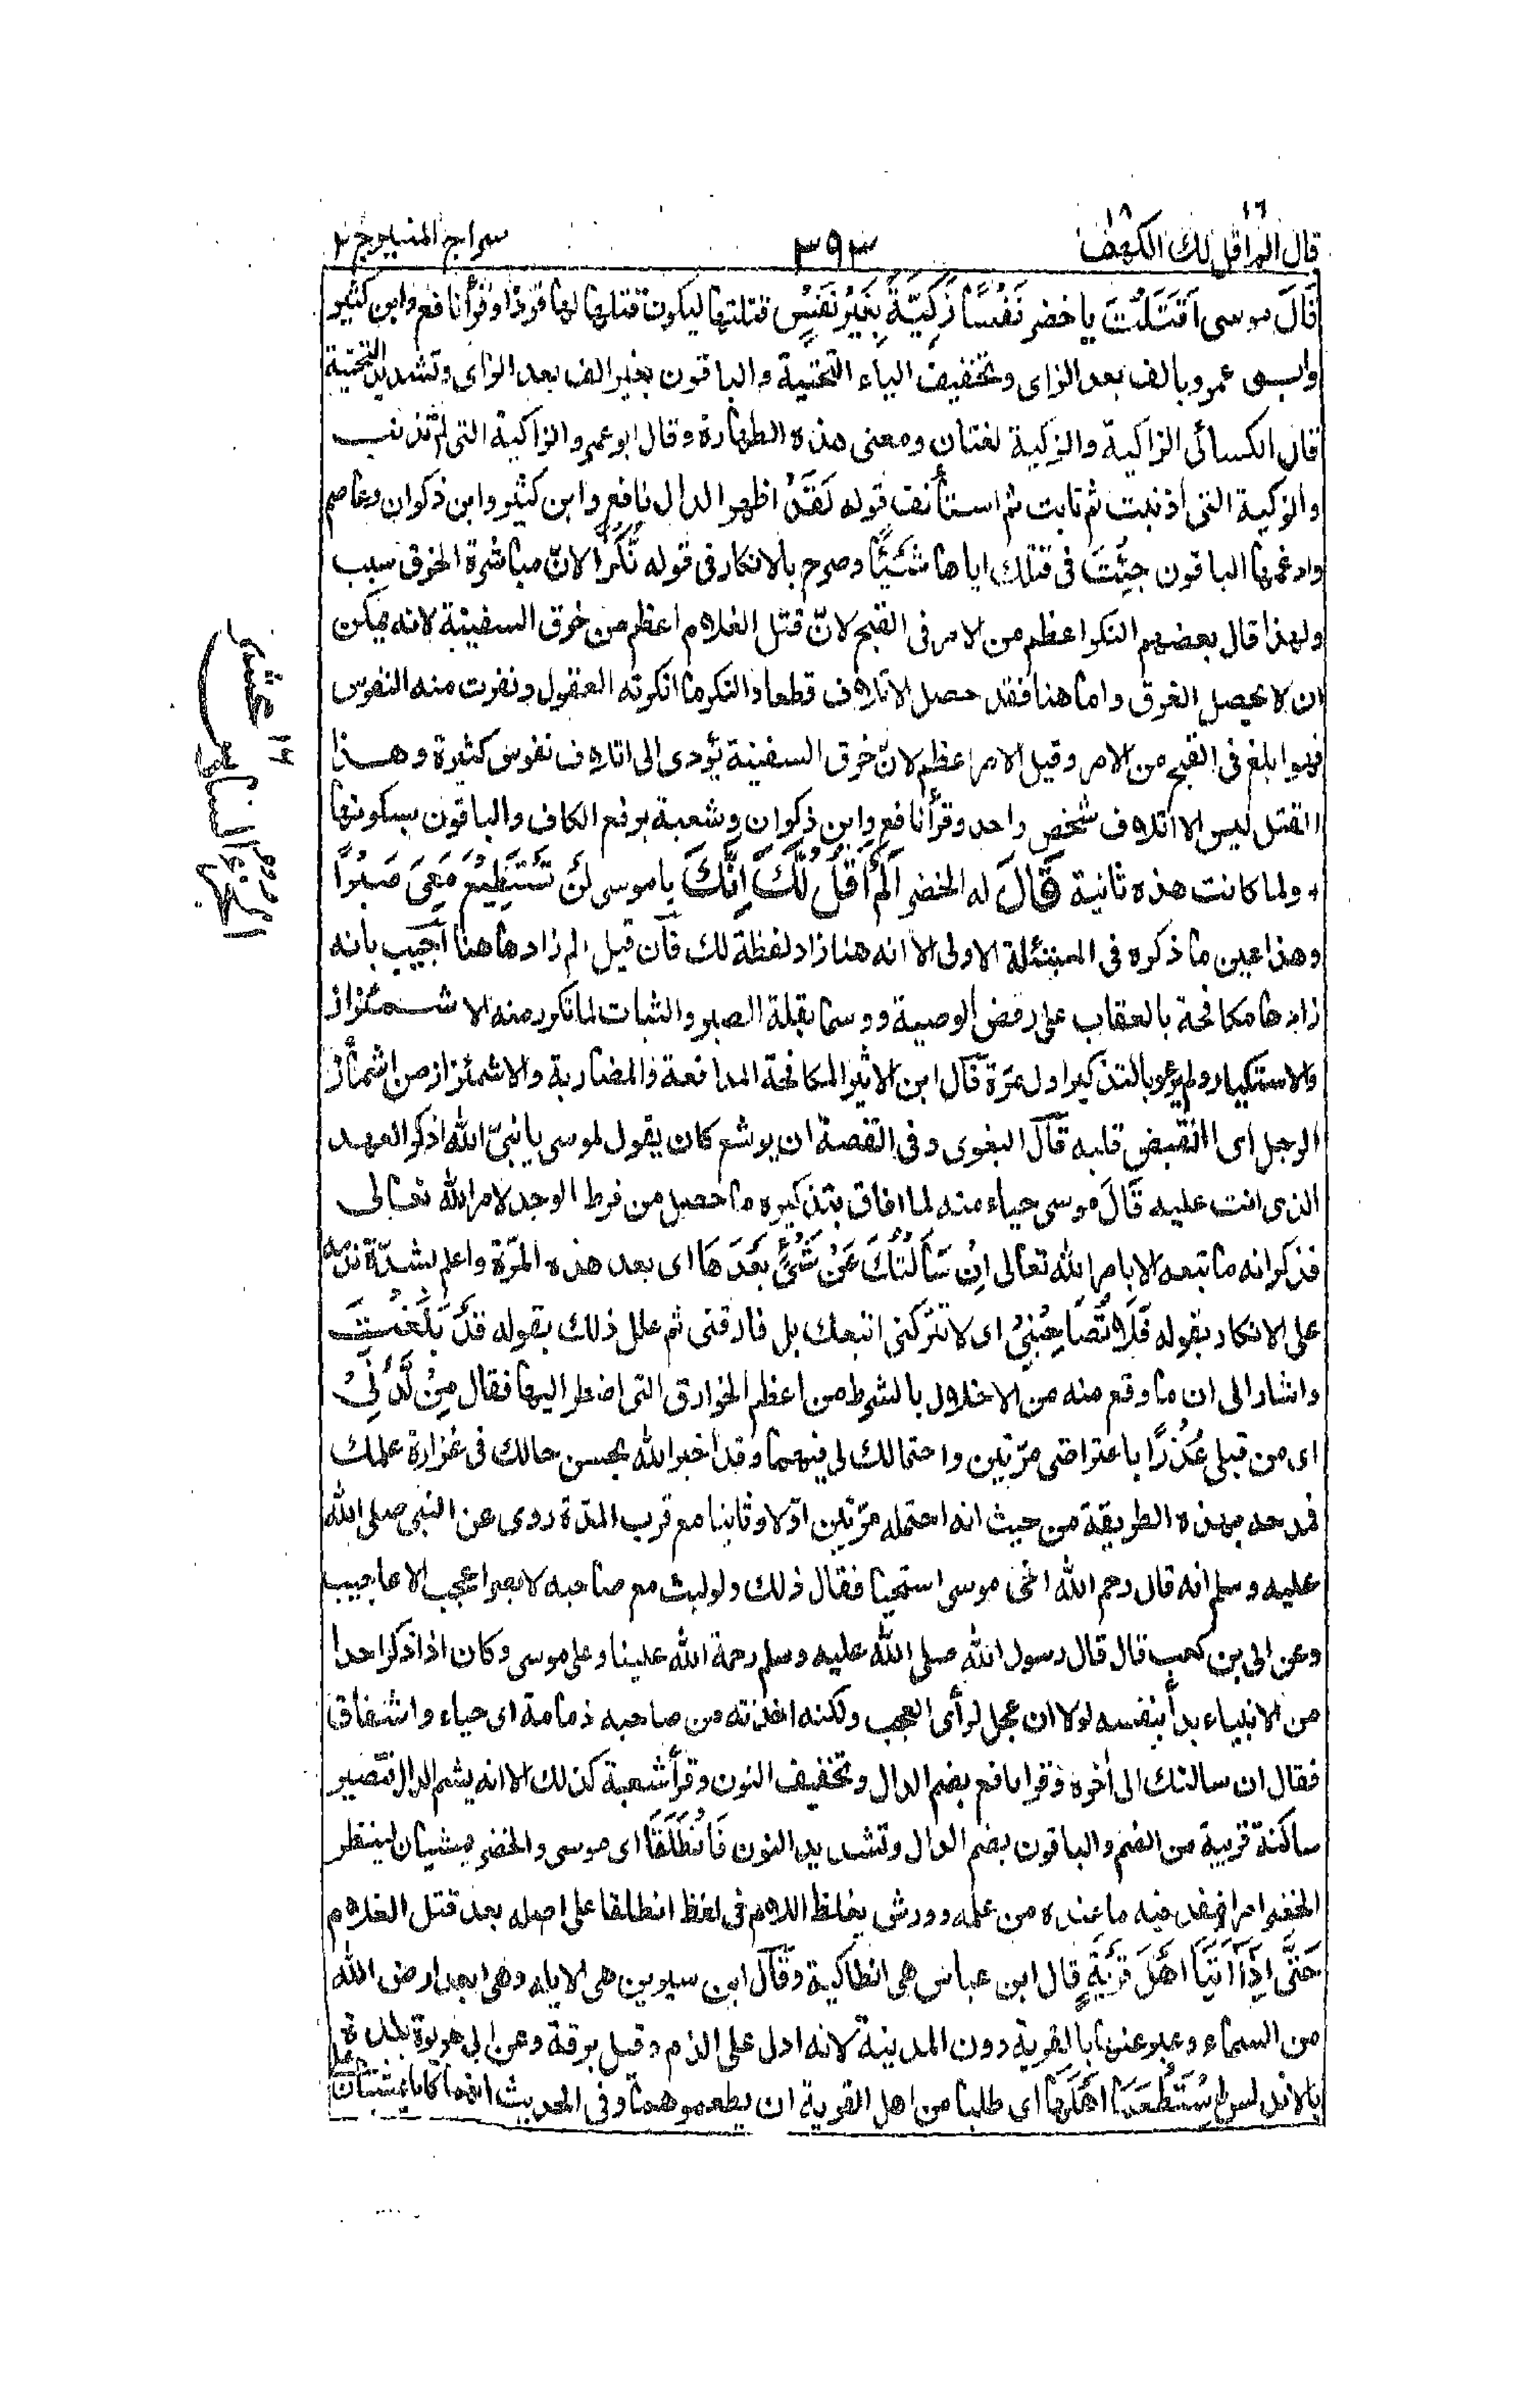 قال الم اقل لك ١٦ الكهف ١٨
٣٩٣
سراج المنير ج ٢
قَالَ موسى اَقَتَلْتَ يا خضر نَفْسًا زَكِيَّةً بِغَيْرِ نَفْسٍ قتلتها ليكون قتلها لها قودا وقرأ نافع وابن كثير
وابو عمرو بالف بعد الزاى وتخفيف الياء التحتية والباقون بغير الف بعد الزاى وتشديد التحتية
قال الكسائى الزاكية والزكية لغتان ومعنى هذه الطهارة وقال ابو عمرو الزاكية التى لم تذنب
والزكية التى اذنبت ثم تابت ثم استأنف قوله لَقَدْ اظهر الدال نافع وابن كثير وابن ذكوان وعاصم
وادغمها الباقون جِئْتَ فى قتلك اياها شَيْئًا وصرح بالانكار فى قوله نُّكْرًا لانّ مباشرة الخرق سبب
ولهذا قال بعضهم النكر اعظم من الامر فى القبح لانّ قتل الغلام اعظم من خرق السفينة لانه يمكن
ان لا يحصل الغرق واما هنا فقد حصل الاتلاف قطعا والنكر ما انكرته العقول ونفرت منه النفوس
فهو ابلغ فى القبح من الامر وقيل الامر اعظم لانّ خرق السفينة يؤدى الى اتلاف نفوس كثيرة وهذا
القتل ليس الا اتلاف شخص واحد وقرأ نافع وابن ذكوان وشعبة برفع الكاف والباقون بسكونها
ولما كانت هذه ثانية قَالَ له الخضر اَلَمْ اَقُلْ لَّكَ اِنَّكَ يا موسى لَنْ تَسْتَطِيْعَ مَعِيَ صَبْرًا
وهذا عين ما ذكره فى المسئلة الاولى الا انه هنا زاد لفظة لك فان قيل لم زادها هنا اجيب بانه
زادها مكافحة بالعقاب على رفض الوصية ووسما بقلة الصبر والثبات لما تكرر منه الاشمئزاز
والاستكبار ولم يرعو بالتذكير اول مرّة قال ابن الاثير المكافحة المدافعة والمضاربة والاشمئزاز من اشمأز
الرجل اى انقبض قلبه قال البغوى وفى القصة ان يوشع كان يقول لموسى يا نبىّ الله اذكر العهد
الذى انت عليه قَالَ موسى حياء منه لما افاق بتذكيره ما حصل من فرط الوجد لامر الله تعالى
فذكر انه ما تبعه الا بامر الله تعالى اِنْ سَاَلْتُكَ عَنْ شَيْءٍ بَعْدَهَا اى بعد هذه المرّة واعلم بشدّة ندمه
على الانكار بقوله فَلَا تُصَاحِبْنِيْ اى لا تتركنى اتبعك بل فارقنى ثم علل ذلك بقوله قَدْ بَلَغْتَ
واشار الى ان ما وقع منه من الاخلال بالشرط من اعظم الخوارق التى اضطر اليها فقال مِنْ لَّدُنِّيْ
اى من قبلى عُذْرًا باعتراضى مرّتين واحتمالك لى فيهما وقد اخبر الله بحسن حالك فى غزارة علمك
فمدحه بهذه الطريقة من حيث انه احتمله مرّتين اوّلا وثانيا مع قرب المدّة روى عن النبى صلى الله
عليه وسلم انه قال رحم الله اخى موسى استحيا فقال ذلك ولو لبث مع صاحبه لابصر اعجب الاعاجيب
وعن ابى بن كعب قال قال رسول الله صلى الله عليه وسلم رحمة الله علينا وعلى موسى وكان اذا ذكر احدا
من الانبياء بدأ بنفسه لولا ان عجل لرأى العجب ولكنه اخذته من صاحبه ذمامة اى حياء واشفاق
فقال ان سالتك الى اخره وقرا نافع بضم الدال وتخفيف النون وقرأ شعبة كذلك الا انه يشم الدال فتصير
ساكنة قريبة من الضم والباقون بضم الدال وتشديد النون فَانْطَلَقَا اى موسى والخضر يمشيان لينظر
الخضر امرا ينفد فيه ما عنده من علمه وورش يغلظ اللام فى لفظ انطلقا على اصله بعد قتل الغلام
حَتّٰى اِذَا اَتَيَا اَهْلَ قَرْيَةٍ قال ابن عباس هى انطاكية وقال ابن سيرين هى الايله وهى ابعد ارض الله
من السماء وعبر عنها بالقرية دون المدينة لانه ادل على الذم وقيل برقة وعن ابى هريرة بلدة
بالاندلس اسْتَطْعَمَا اَهْلَهَا اى طلبا من اهل القرية ان يطعموهما وفى الحديث انهما كانا يمشيان على
الجزء السادس عشر ١٦